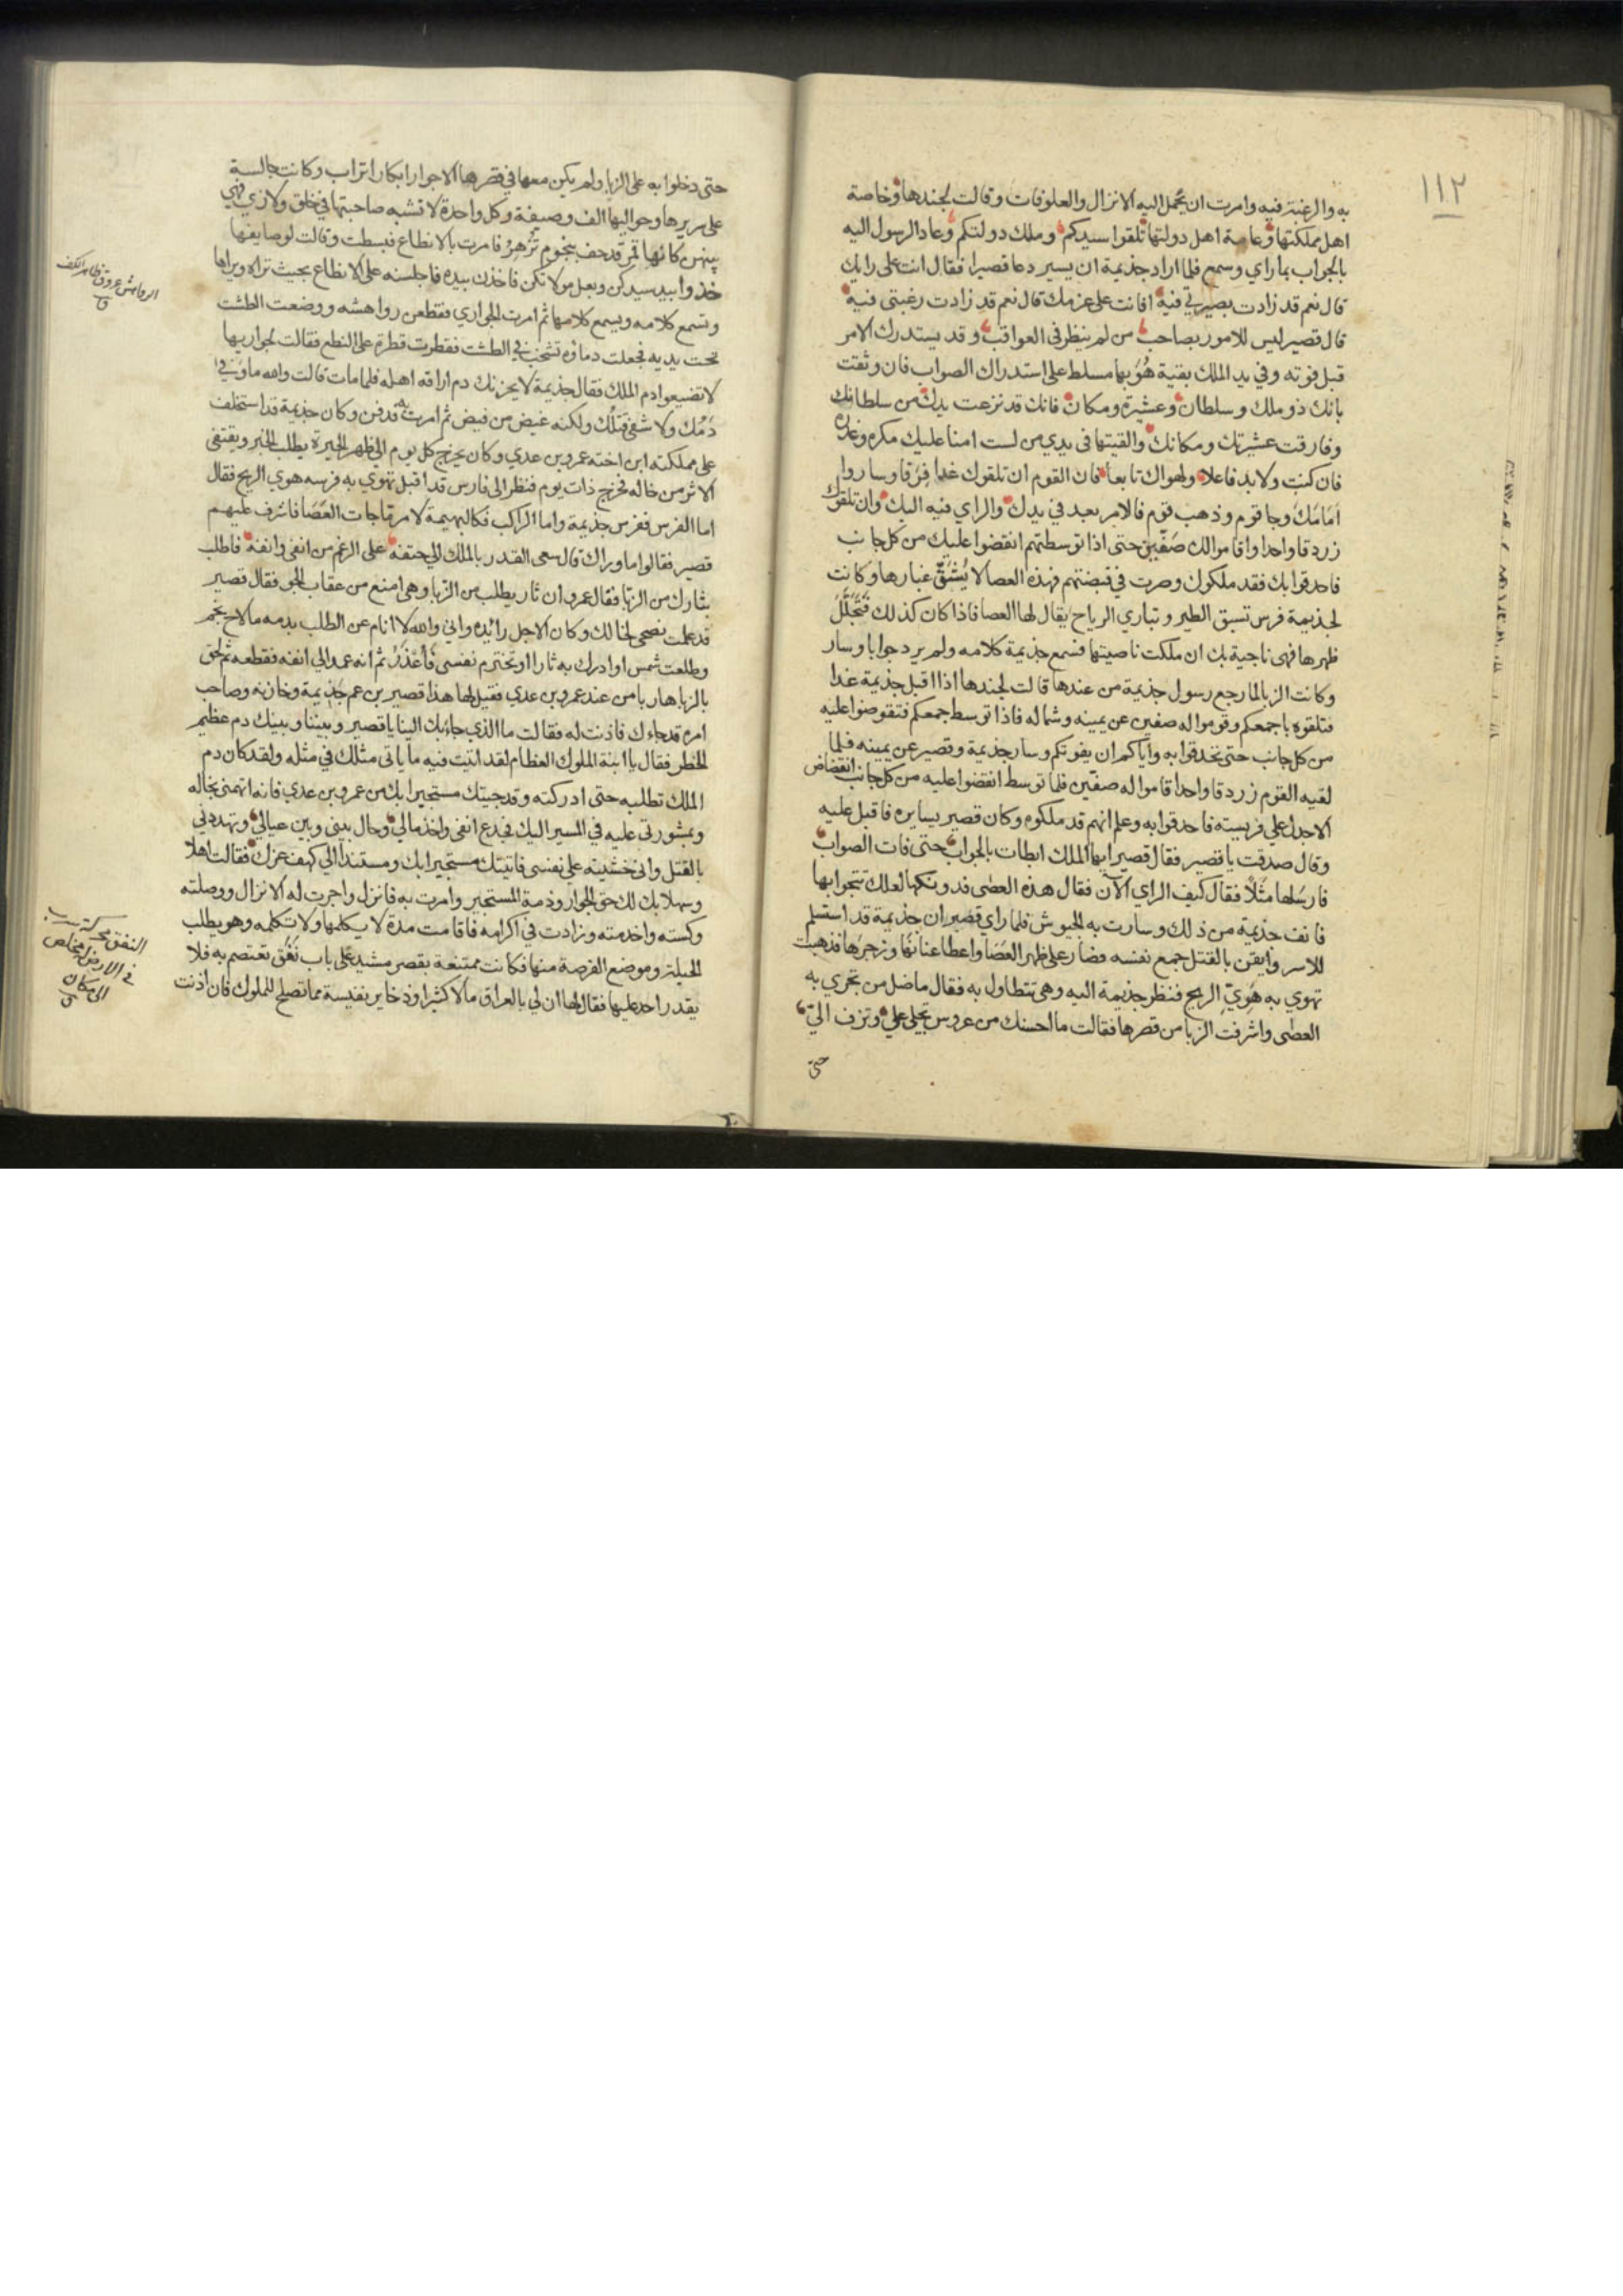 ١١٢
به والرغبة فيه وامرت ان يحمل اليه الانزال والعلوفات وقالت لجندها وخاصة
اهل مملكتها وعامة اهل دولتها تلقوا سيدكم وملك دولتكم وعاد الرسول اليه
بالجواب بما راي وسمع فلما اراد جذيمة ان يسير دعا قصيرا فقال انت على رايك
قال نعم قد زادت بصيرتي فيه افانت على عزمك قال نعم قد زادت رغبتي فيه
قال قصير ليس للامور بصاحب من لم ينظر في العواقب وقد يستدرك الامر
قبل فوته وفي يد الملك بقية هو بها مسلط على استدراك الصواب فان وثقت
بانك ذو ملك وسلطان وعشيرة ومكان فانك قد نزعت يدك من سلطانك
وفارقت عشيرتك ومكانك والقيتها في يدي من لست امنا عليك مكره وغدره
فان كنت ولا بد فاعلا ولهواك تابعا فان القوم ان تلقوك غدا فرقا وساروا
امامك وجا قوم وذهب قوم فالامر بعد في يدك والراي فيه اليك وان تلقوك
زردقا واحدا واقاموا لك صفين حتى اذا توسطتهم انقضوا عليك من كل جانب
فاحدقوا بك فقد ملكوك وصرت في قبضتهم فهذه العصا لا يشق غبارها وكانت
لجذيمة فرس تسبق الطير وتباري الرياح يقال لها العصا فاذا كان كذلك فتجلل
ظهرها فهي ناجية بك ان ملكت ناصيتها فسمع جذيمة كلامه ولم يرد جوابا وسار
وكانت الزبا لما رجع رسول جذيمة من عندها قالت لجندها اذا اقبل جذيمة غدا
فتلقوه باجمعكم وقوموا له صفين عن يمينه وشماله فاذا توسط جمعكم فتقوضوا عليه
من كل جانب حتى تحدقوا به واياكم ان يفوتكم وسار جذيمة وقصير عن يمينه فلما
لقيه القوم زردقا واحدا قاموا له صفين فلما توسط انقضوا عليه من كل جانب انقضاض
الاجدل على فريسته فاحدقوا به وعلم انهم قد ملكوه وكان قصير يسايره فاقبل عليه
وقال صدقت يا قصير فقال قصير ايها الملك ابطات بالجواب حتى فات الصواب
فارسلها مثلا فقال كيف الراي الآن فقال هذه العصى فدونكها لعلك تنجو بها
فانف جذيمة من ذلك وسارت به الجيوش فلما راي قصير ان جذيمة قد استسلم
للاسر وايقن بالقتل جمع نفسه فصار على ظهر العصا واعطا عنانها وزجرها فذهبت
تهوي به هوي الريح فنظر جذيمة اليه وهي تتطاول به فقال ماضل من تجري به
العصى واشرفت الزبا من قصرها فقالت ما احسنك من عروس تجلى علي وتزف الي
حتى
حتى دخلوا به على الزبا ولم يكن معها في قصرها الا جوار ابكار اتراب وكانت جالسة
على سريرها وحواليها الف وصيفة وكل واحدة لا تشبه صاحبتها في خلق ولا زي فهي
بينهن كانها قمر قد حف بنجوم تزهر فامرت بالانطاع فبسطت وقالت لوصايفها
خذوا بيد سيدكن وبعل مولاتكن فاخذن بيده فاجلسنه على الانطاع بحيث تراه ويراها
وتسمع كلامه ويسمع كلامها ثم امرت الجواري فقطعن رواهشه ووضعت الطشت
تحت يديه فجعلت دماؤه تشخب في الطشت فقطرت قطرة على النطع فقالت لجواريها
لا تضيعوا دم الملك فقال جذيمة لا يحزنك دم اراقه اهله فلما مات قالت والله ما وفى
دمك ولا شفى قتلك ولكنه غيض من فيض ثم امرت به قدفن وكان جذيمة قد استخلف
على مملكته ابن اخته عمرو بن عدي وكان يخرج كل يوم الى ظهر الحيرة يطلب الخبر ويقتفى
الاثر من خاله فخرج ذات يوم فنظر الى فارس قد اقبل تهوي به فرسه هوي الريح فقال
اما الفرس ففرس جذيمة واما الراكب فكالبهيمة لامر ما جات العصا فاشرف عليهم
قصير فقالوا ما وراك قال سعى القدر بالملك الى حتفه على الرغم من انفي وانفه فاطلب
بثارك من الزبا فقال عمرو اي ثار يطلب من الزبا وهي امنع من عقاب الجو فقال قصير
قد علمت نصحي لخالك وكان الاجل رائيده واني والله لا انام عن الطلب بدمه ما لاح نجم
وطلعت شمس او ادرك به ثارا او تخترم نفسى فاعذر ثم انه عمد الى انفه فقطعه ثم لحق
بالزبا هاربا من عند عمرو بن عدي فقيل لها هذا قصير بن عم جذيمة وخازنه وصاحب
امره قد جاءك فاذنت له فقالت ما الذي جاءبك الينا يا قصير وبيننا وبينك دم عظيم
الخطر فقال يا ابنة الملوك العظام لقد اتيت فيه ما ياتى مثلك في مثله ولقد كان دم
الملك تطلبه حتى ادركته وقد جيتك مستجيرا بك من عمرو بن عدي فانه اتهمني بخاله
وبمشورتي عليه في المسير اليك فجدع انفى واخذ مالي وحال بيني وبين عيالي وتهددني
بالقتل واني خشيته على نفسى فاتيتك مستجيرا بك ومستندا الى كهف عزك فقالت اهلا
وسهلا بك لك حق الجوار وذمة المستجير وامرت به فانزل واجرت له الانزال ووصلته
وكسته واخدمته وزادت في اكرامه فاقامت مدة لا يكلمها ولا تكلمه وهو يطلب
الحيلة وموضع الفرصة منها فكانت ممتنعة بقصر مشيد على باب نفق تعتصم به فلا
يقدر احد عليها فقال لها ان لي بالعراق مالا كثيرا وذخاير نفيسة مما تصلح للملوك فان اذنت
الرواهش عروق ظاهر الكف
ق
النفق محركة سرب
في الارض له مخلص
الى مكان
ق